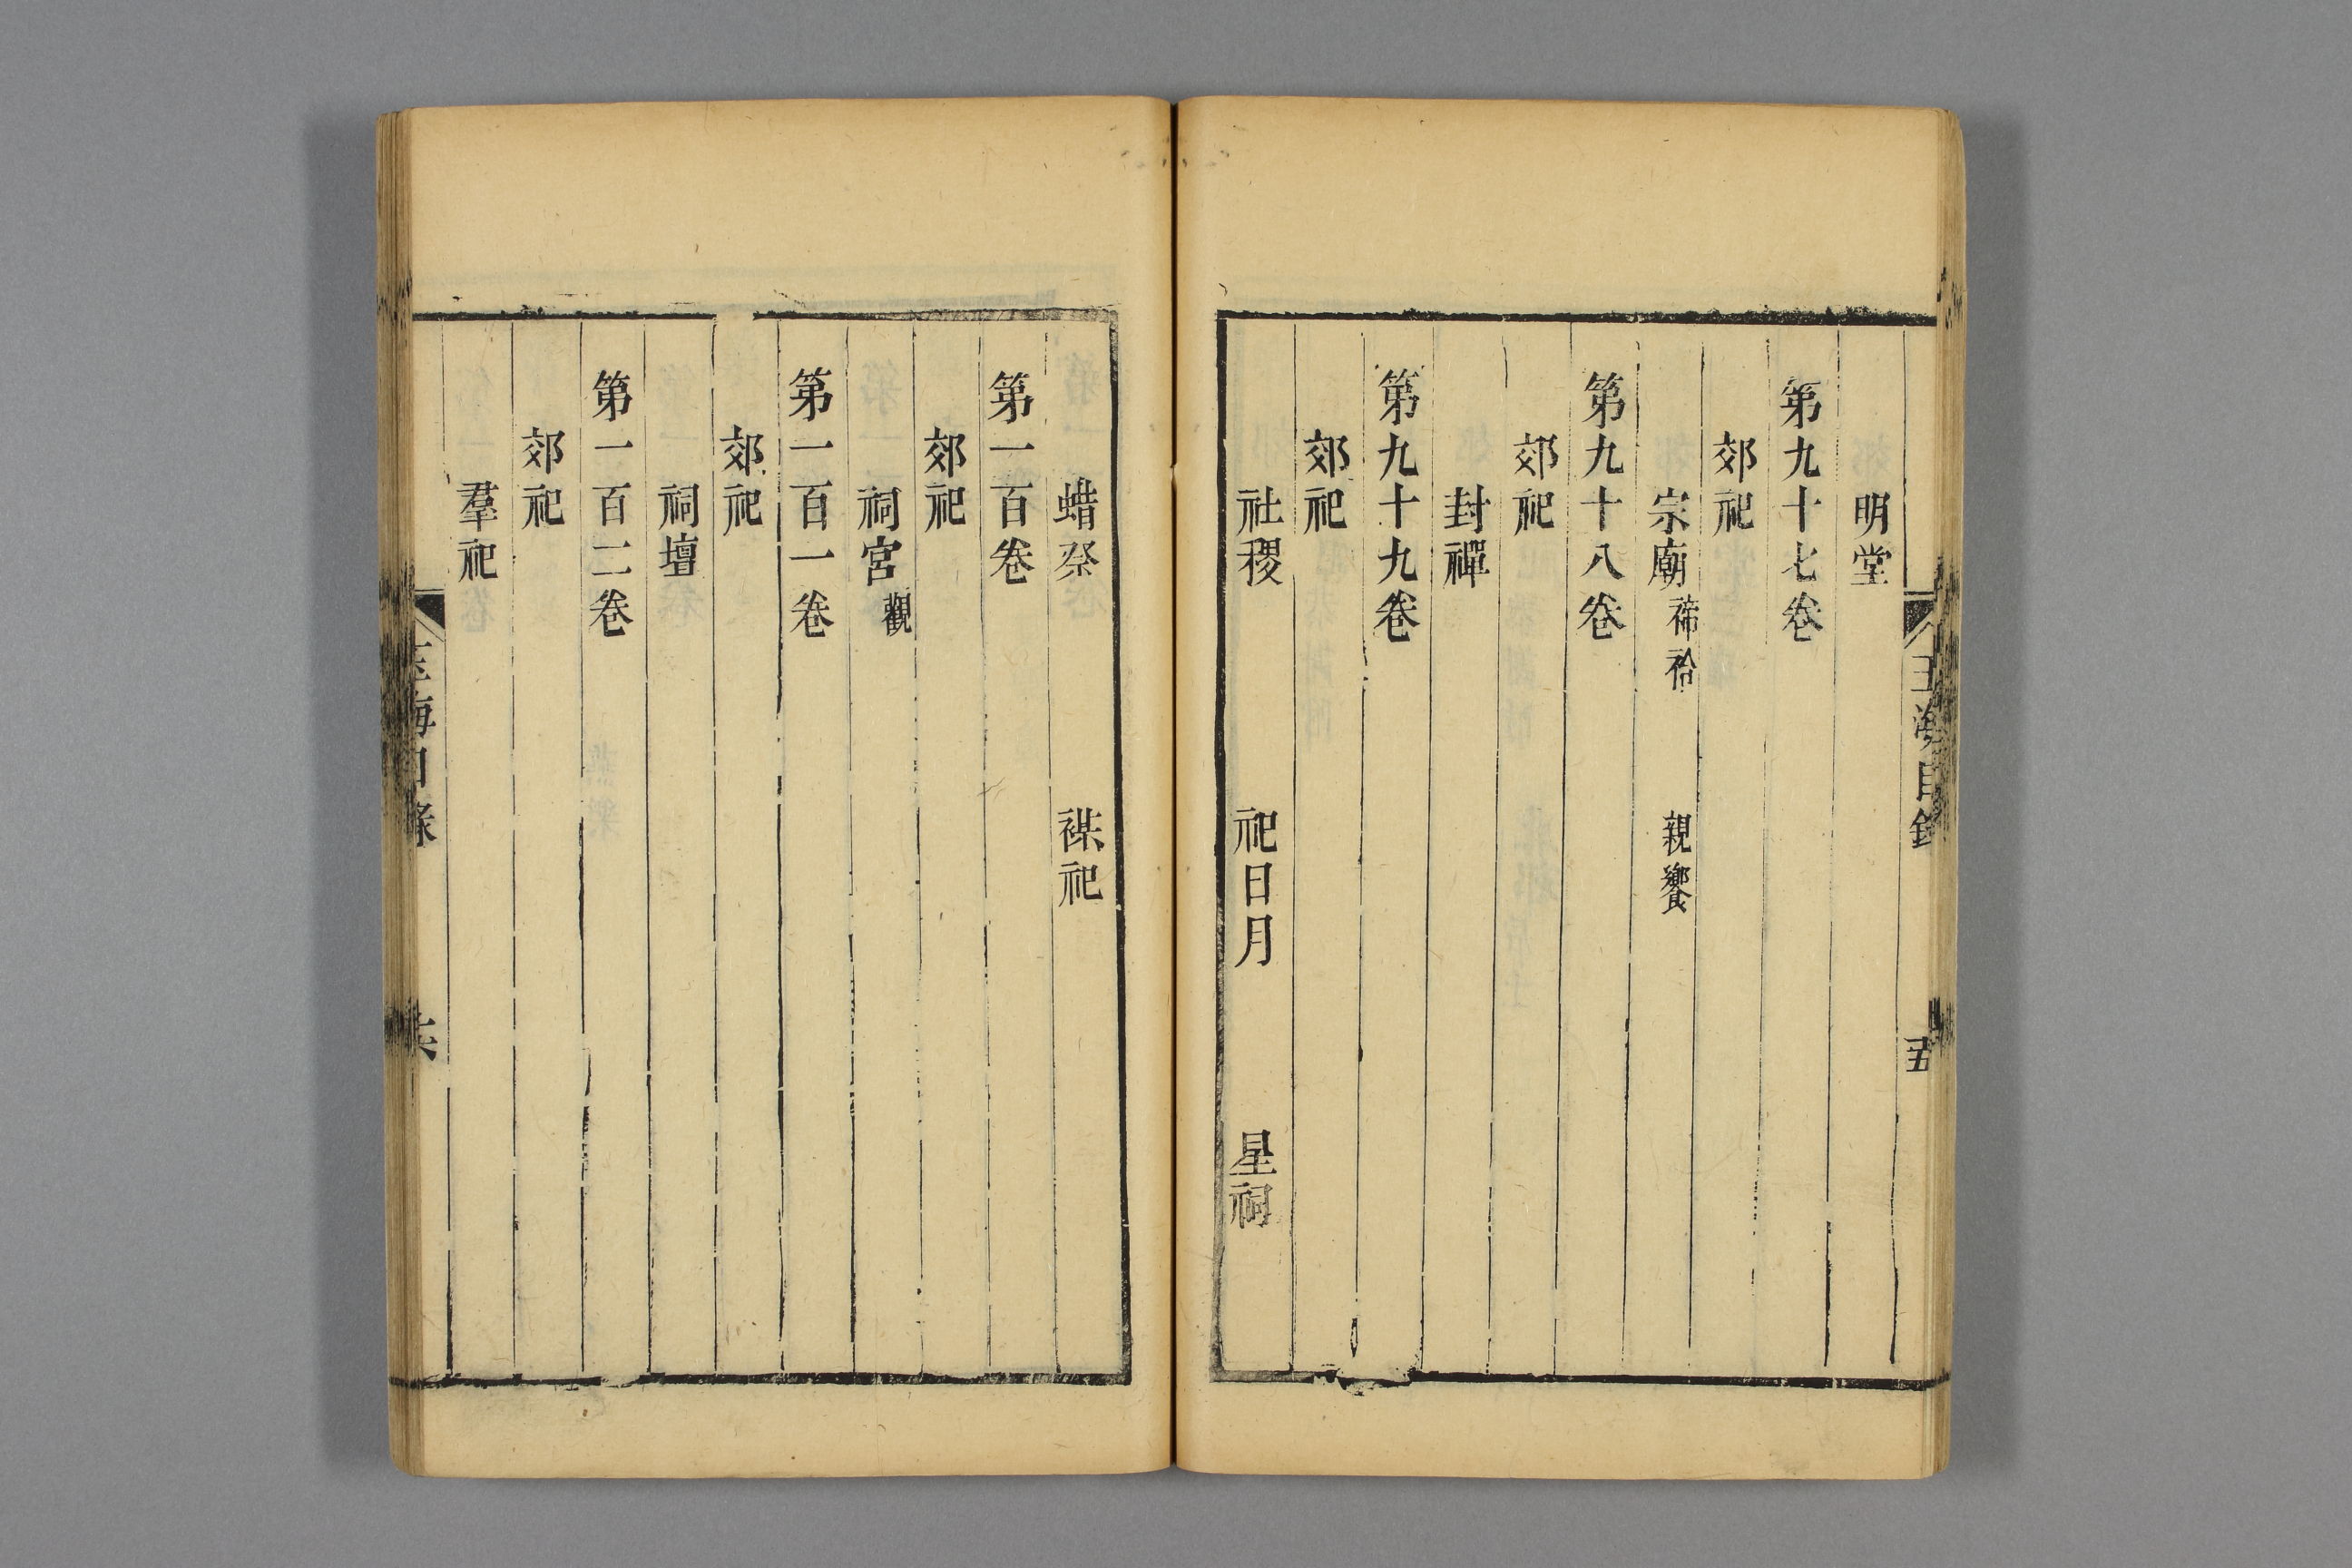 玉海目錄 五
明堂
第九十七卷
郊祀
宗廟 禘祫 親饗
第九十八卷
郊祀
封禪
第九十九卷
郊祀
社稷 祀日月 星祠
蜡祭 禖祀
第一百卷
郊祀
祠宮 觀
第一百一卷
郊祀
祠壇
第一百二卷
郊祀
羣祀
玉海目錄